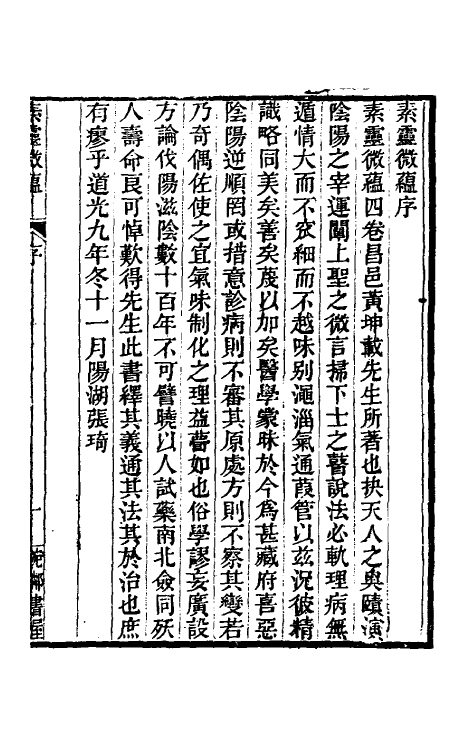 素靈微蘊序
素靈微蘊四卷昌邑黃坤載先生所著也抉天人之奧賾演
陰陽之宰運闡上聖之微言掃下士之瞽說法必軌理病無
遁情大而不窕細而不越味別澠淄氣通葭管以茲況彼精
識略同美矣善矣蔑以加矣醫學蒙昧於今爲甚藏府喜惡
陰陽逆順罔或措意診病則不審其原處方則不察其變若
乃奇偶佐使之宜氣味制化之理益瞢如也俗學謬妄廣設
方論伐陽滋陰數十百年不可譬曉以人試藥南北僉同殀
人壽命良可悼歎得先生此書繹其義通其法其於治也庶
有瘳乎道光九年冬十一月陽湖張琦
素靈微蘊
序
一
宛鄰書屋